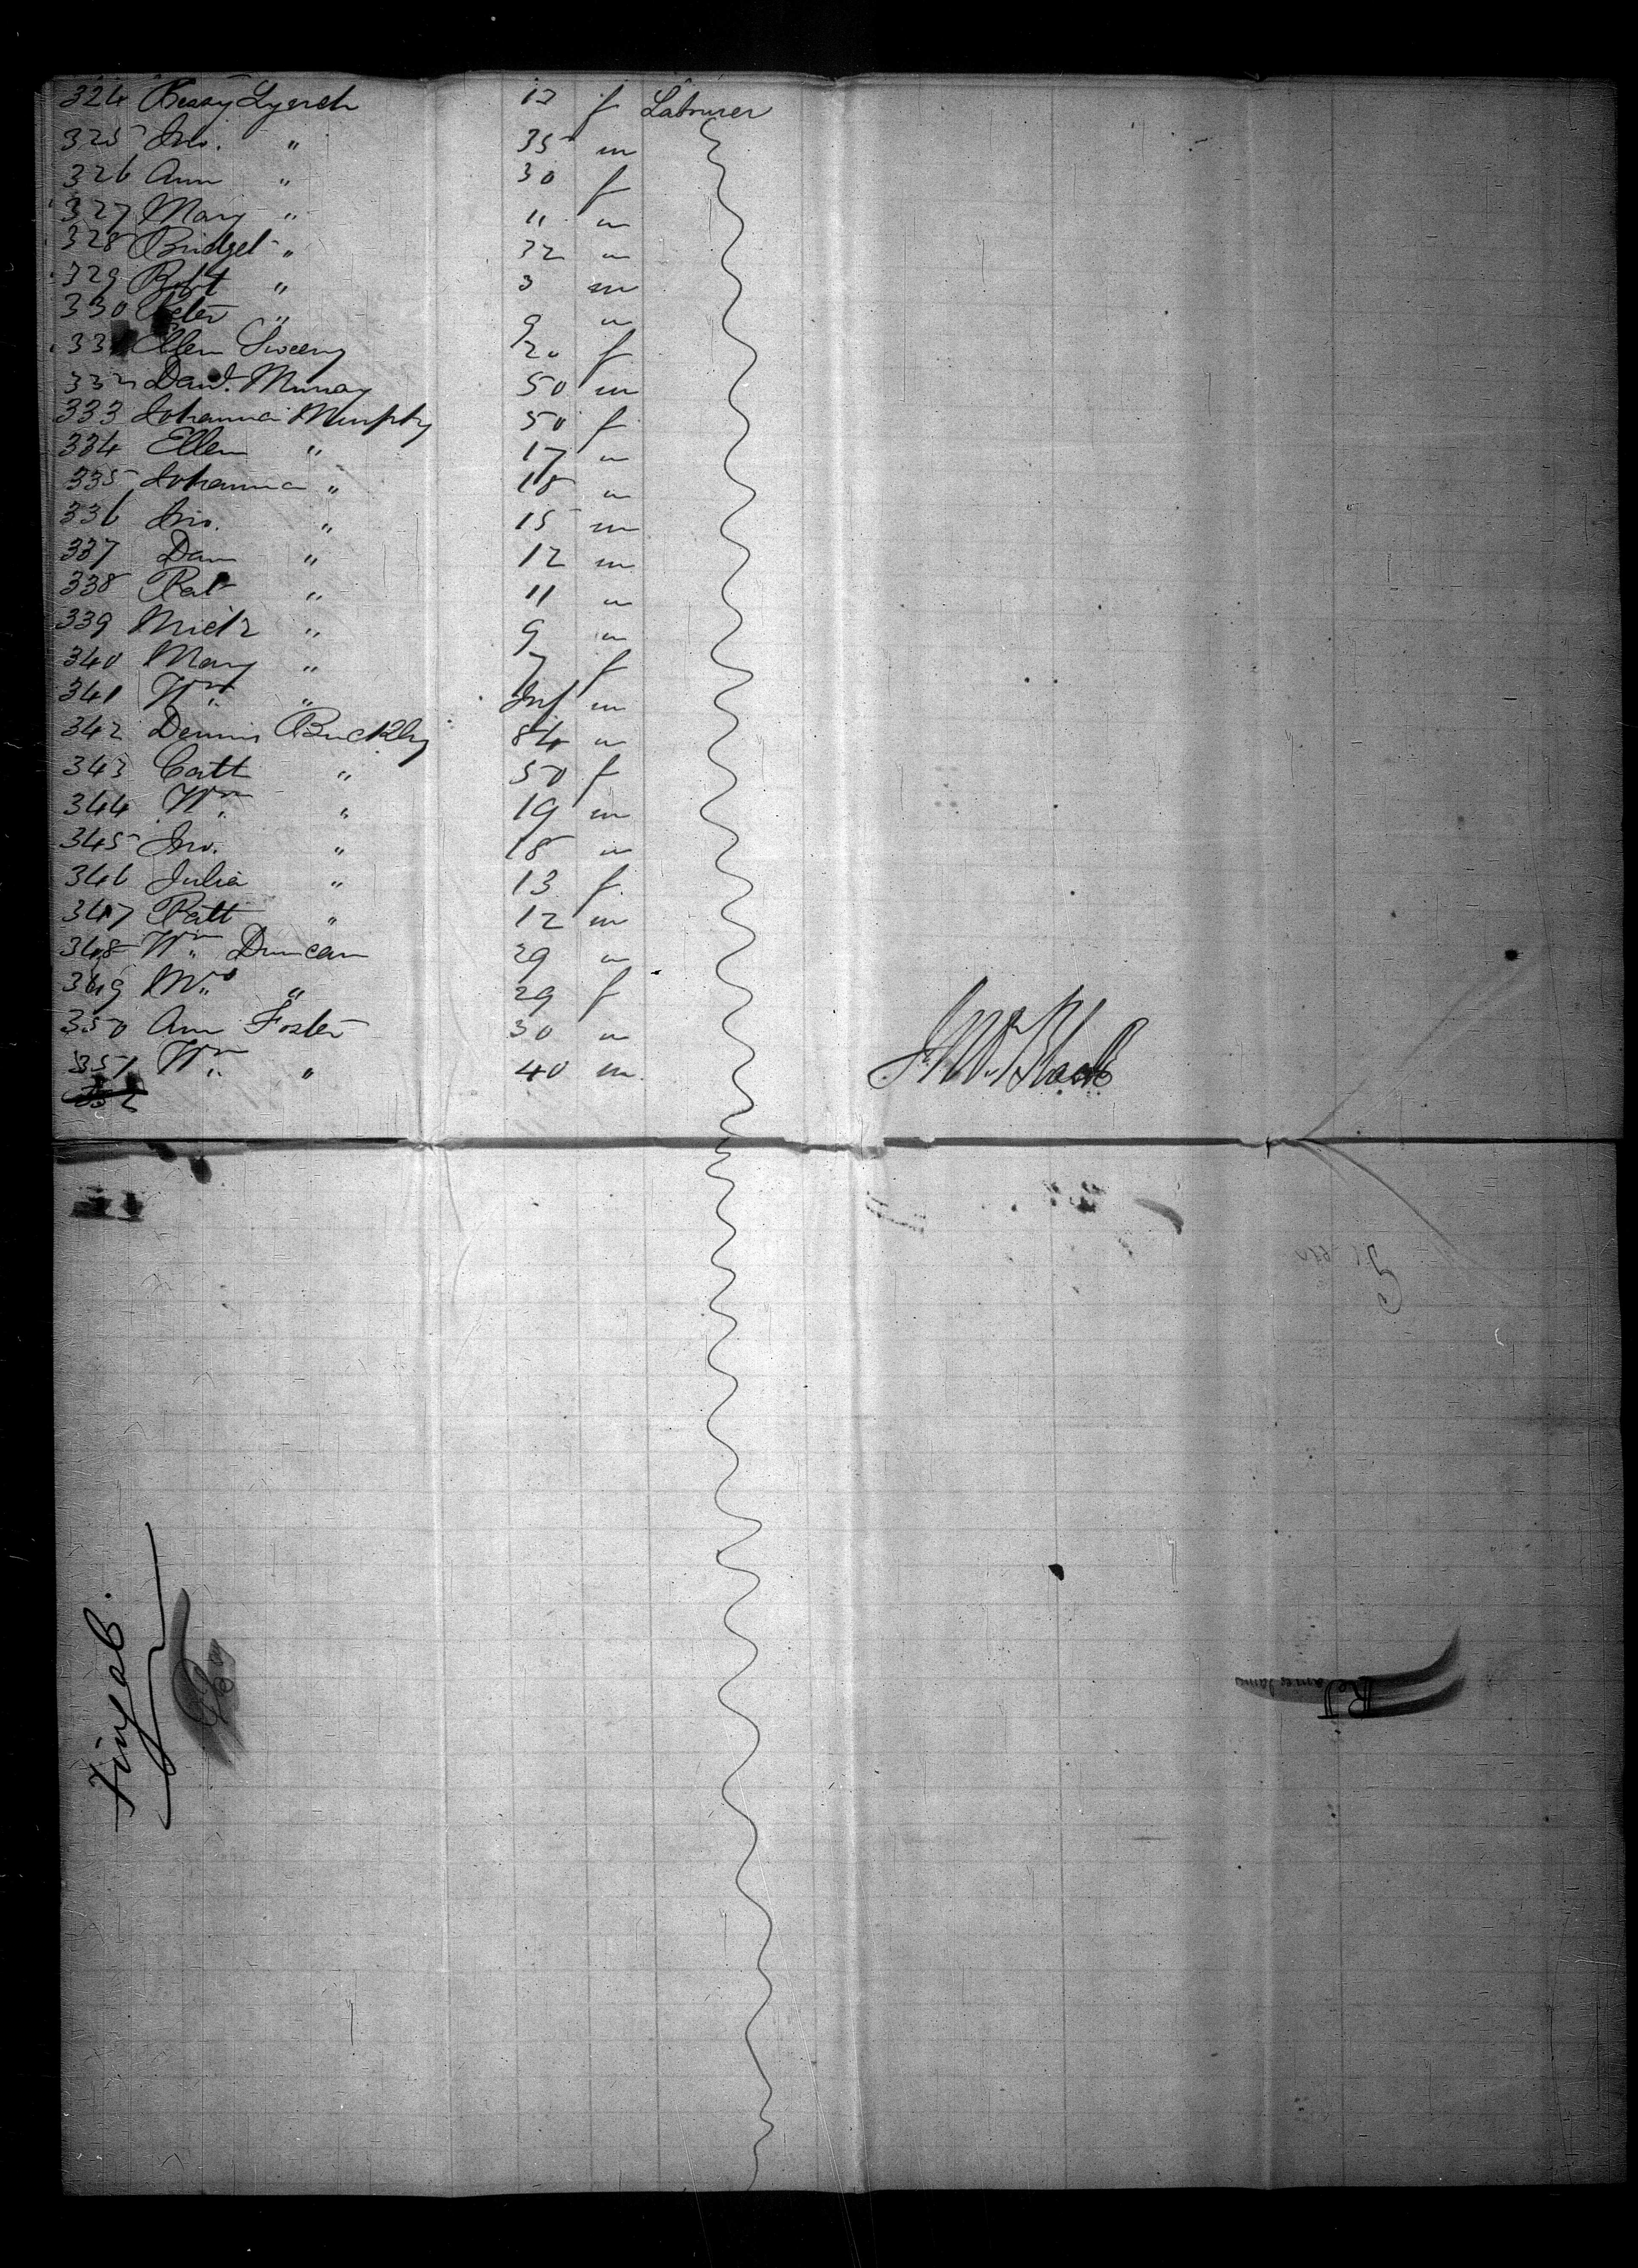 324 Bessy Lynch 12 f Labourer
325 Jno. " 35 m
326 Ann " 30 f
327 Mary " 11 "
328 Bridget " 32 "
329 Robt " 3 m
330 Peter " 9 "
331 Ellen Sweeny 20 f
332 Danl. Murray 50 m
333 Johanna Murphy 50 f
334 Ellen " 17 "
335 Johanna " 18 "
336 Jno. " 15 m
337 Dan " 12 m
338 Pat " 11 "
339 Mich " 9 "
340 Mary " 7 f
341 Wm " Inf m
342 Dennis Buckley 84 "
343 Cath " 50 f
344 Wm " 19 m
345 Jno. " 18 "
346 Julia " 13 f
347 Patt " 12 m
348 Wm Duncan 29 "
349 Mrs " 29 f
350 Ann Foster 30 "
351 Wm " 40 m
352
Fingal.